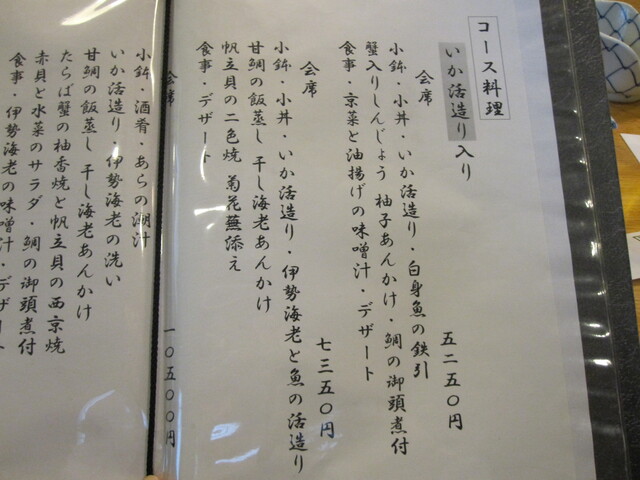 コース料理
いか活造り入り
会席 五二五〇円
小鉢・小丼・いか活造り・白身魚の鉄引
蟹入りしんじょう 柚子あんかけ・鯛の御頭煮付
食事・京菜と油揚げの味噌汁・デザート
会席 七三五〇円
小鉢・小丼・いか活造り・伊勢海老と魚の活造り
甘鯛の飯蒸し 干し海老あんかけ
帆立貝の二色焼 菊花蕪添え
食事・デザート
会席 一〇五〇〇円
小鉢・酒肴・あらの潮汁
いか活造り・伊勢海老の洗い
甘鯛の飯蒸し 干し海老あんかけ
たらば蟹の柚香焼と帆立貝の西京焼
赤貝と水菜のサラダ・鯛の御頭煮付
食事・伊勢海老の味噌汁・デザート